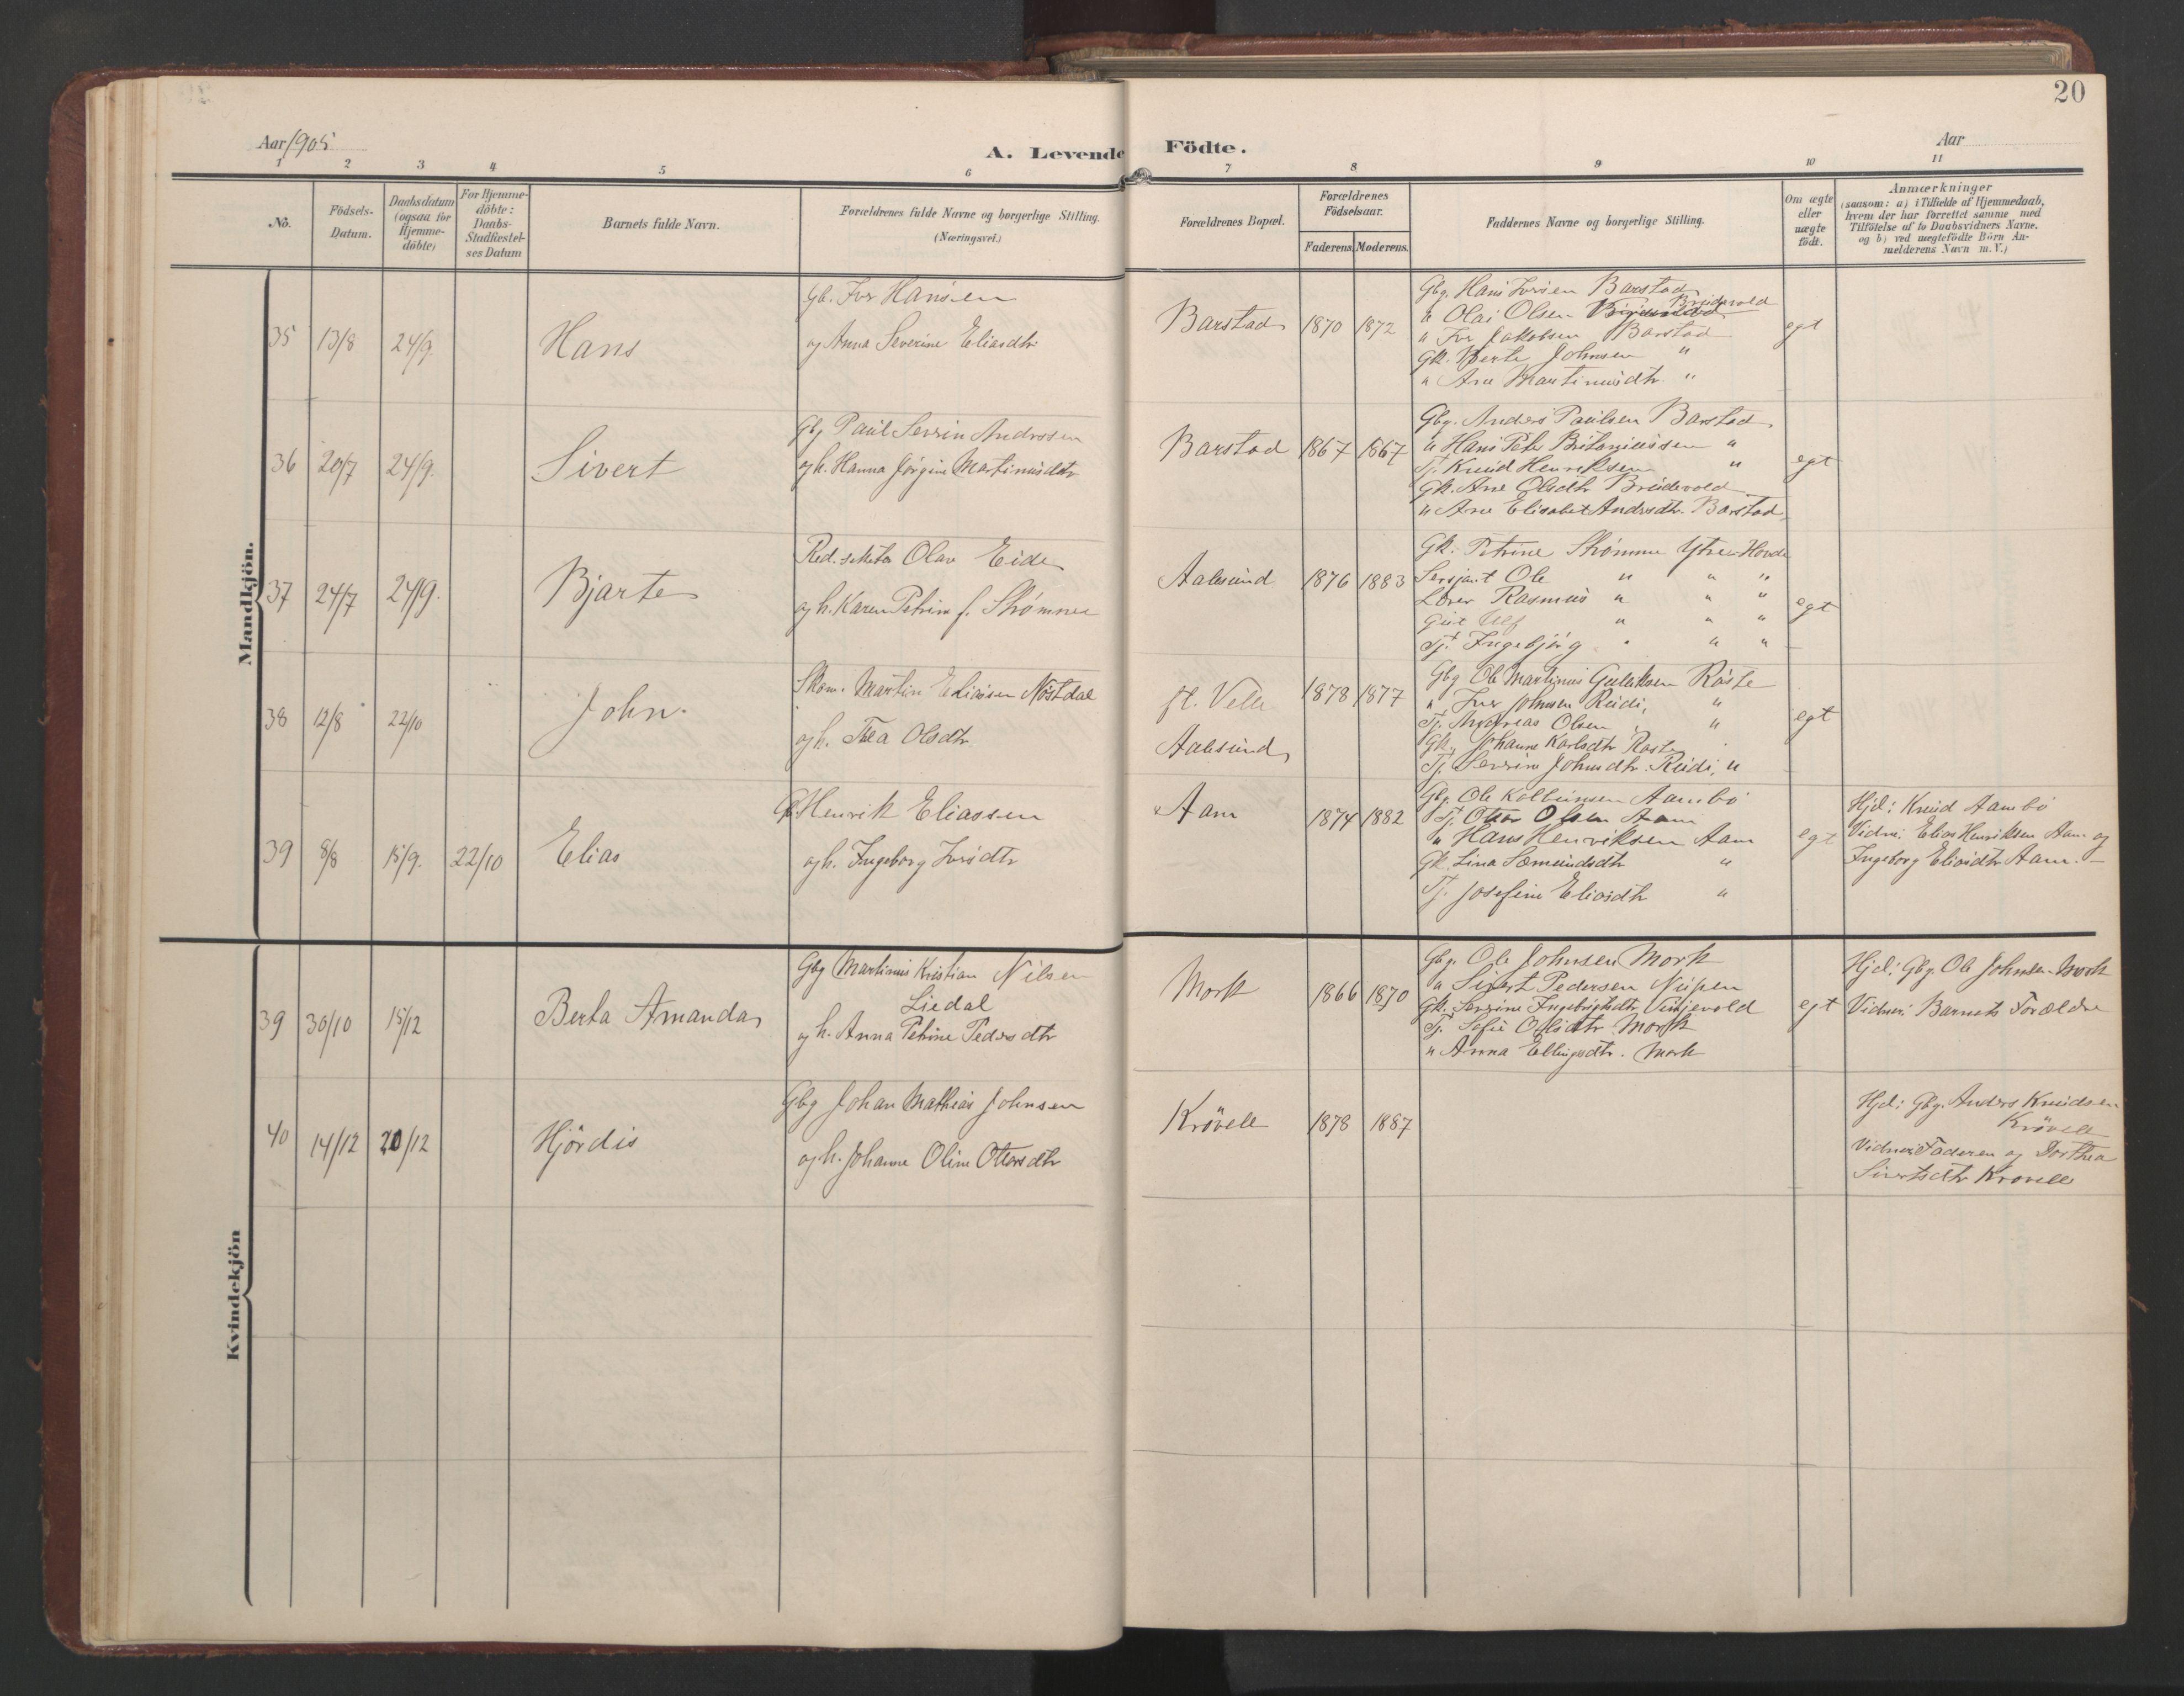 20
Aar 1905
A. Levende Födte.
Aar
1 2 3 4 5 6 7 8 9 10 11
No.
Födsels-Datum.
Daabsdatum (ogsaa for Hjemme-döbte)
For Hjemme-döbte: Daabs-Stadfæstel-ses Datum
Barnets fulde Navn.
Forældrenes fulde Navne og borgerlige Stilling.
(Næringsvei.)
Forældrenes Bopæl.
Forældrenes Födselsaar.
Faderens. Moderens.
Faddernes Navne og borgerlige Stilling.
Om ægte eller uægte födt.
Anmærkninger
(saasom: a) i Tilfælde af Hjemmedaab,
hvem der har forrettet samme med
Tilföielse af to Daabsvidners Navne.
og b) ved uægtefödte Börn An-
melderens Navn m. V.)
Mandkjön.
35 13/8 24/9. Hans
Gb. Ivr Hansen
og Anna Severine Eliasdtr.
Barstad 1870 1872
Gbg. Hans Iversen Barstad
" Olai Olsen Breidevold
" Ivr Jakobsen Barstad
Gk. Berte Johnsen "
" Ane Martinusdtr. "
egt
36 20/7 24/9. Sivert
Gbg Paul Severin Andersen
og h. Hanna Jørgine Martinusdtr
Barstad 1867 1867
Gbg. Anders Paulsen Barstad
" Hans Peter Britaniussen "
Tj. Knud Henriksen "
Gk. Ane Olsdtr Breidevold
" Ane Elisabet Andersdtr. Barstad
egt
37 24/7 24/9. Bjarte
Red.sekretær Olav Eide
og h. Karen Petrine f. Strømme
Aalesund 1876 1883
Gk. Petrine Strømme Ytre-Hovde
Sersjant Ole " " "
Lærer Rasmus " " "
Gut Ulf " " "
Tj. Ingebjörg " " "
egt
38 12/8 22/10 John
Skom. Martin Eliassen Nöstdal
og h. Thea Olsdtr.
pt. Velle
Aalesund
1878 1877
Gbg Ole Martinus Gulliksen Raste
" Iver Johnsen Reidi, "
Tj. Andreas Olsen "
Gk. Johanne Karlsdtr Raste
Tj. Severine Johnsdtr. Reidi, "
egt
39 8/8 15/9. 22/10 Elias
Gb Henrik Eliassen
og h. Ingeborg Iversdtr
Aam 1874 1882
Gbg. Ole Kolbeinsen Aambö
Tj. Otter Olsen Aam
" Hans Henriksen Aam
Gk. Lina Sæmundsdtr "
Tj. Josefine Eliasdtr "
egt
Hjd: Knud Aambö
Vidner: Elias Henriksen Aam og
Ingeborg Eliasdtr Aam.
Kvindekjön
39 30/10 15/12 Berta Amanda
Gbg Martinus Kristian Nilsen
Liedal
og h. Anna Petrine Pedersdtr
Mork 1866 1870
Gbg. Ole Johnsen Mork
" Sivert Pedersen Nupen
Gk. Severine Ingebrigtsdtr. Viddevold
Tj. Sofie Olsdtr Mork
" Anna Ellingsdtr. Mork
egt
Hjd: Gbg. Ole Johnsen Mork
Vidner: Barnets Forældre
40 14/12 20/12 Hjördis
Gbg Johan Mathias Johnsen
og h. Johanne Oline Ottersdtr
Krövelle 1878 1887
Hjd: Gbg. Anders Knudsen
Krövelle
Vidner: Faderen og Dorthea
Sivertsdtr Krövelle